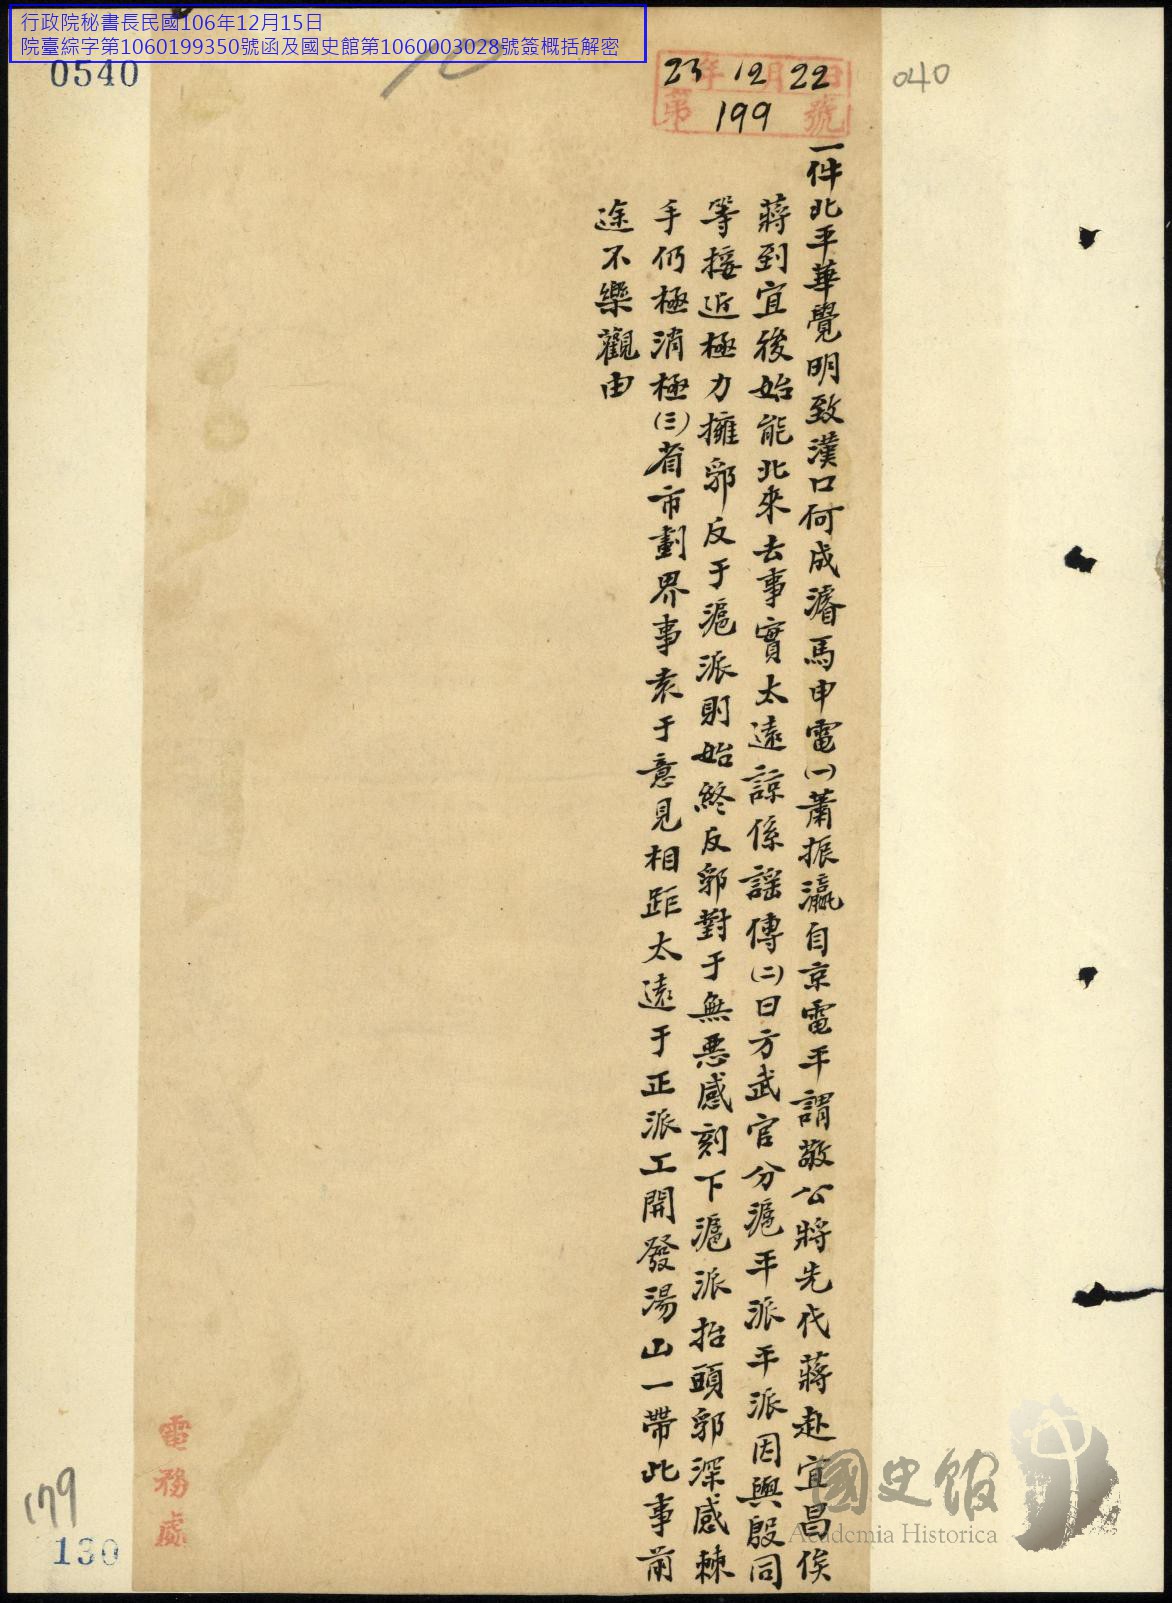 行政院秘書長民國106年12月15日
院臺綜字第1060199350號函及國史館第1060003028號簽概括解密
0540
10
23年12月22日
第199號
040
一件北平華覺明致漢口何成濬馬申電(一)蕭振瀛自京電平謂敬公將先代蔣赴宜昌俟
蔣到宜後始能北來去事實太遠諒係謠傳(二)日方武官分滬平派平派因與殷同
等接近極力擁郭反于滬派則始終反郭對于無惡感刻下滬派抬頭郭深感棘
手仍極消極(三)省市劃界事袁于意見相距太遠于正派工開發湯山一帶此事前
途不樂觀由
電務處
179
130
國史館
Academia Historica